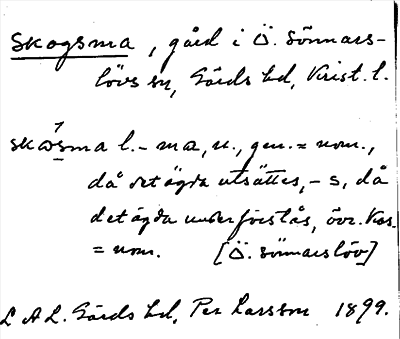 Skogsma, gård i Ö. Sönnars-
lövs sn, Gärds hd, Krist. l.
skåsma l. -ma, n., gen. = nom.,
då det ägda utsättes, -s, då
det ägda underförstås, övr. kas.
= nom. [Ö. Sönnarslöv]
L A L. Gärds hd, Per Larsson 1899.